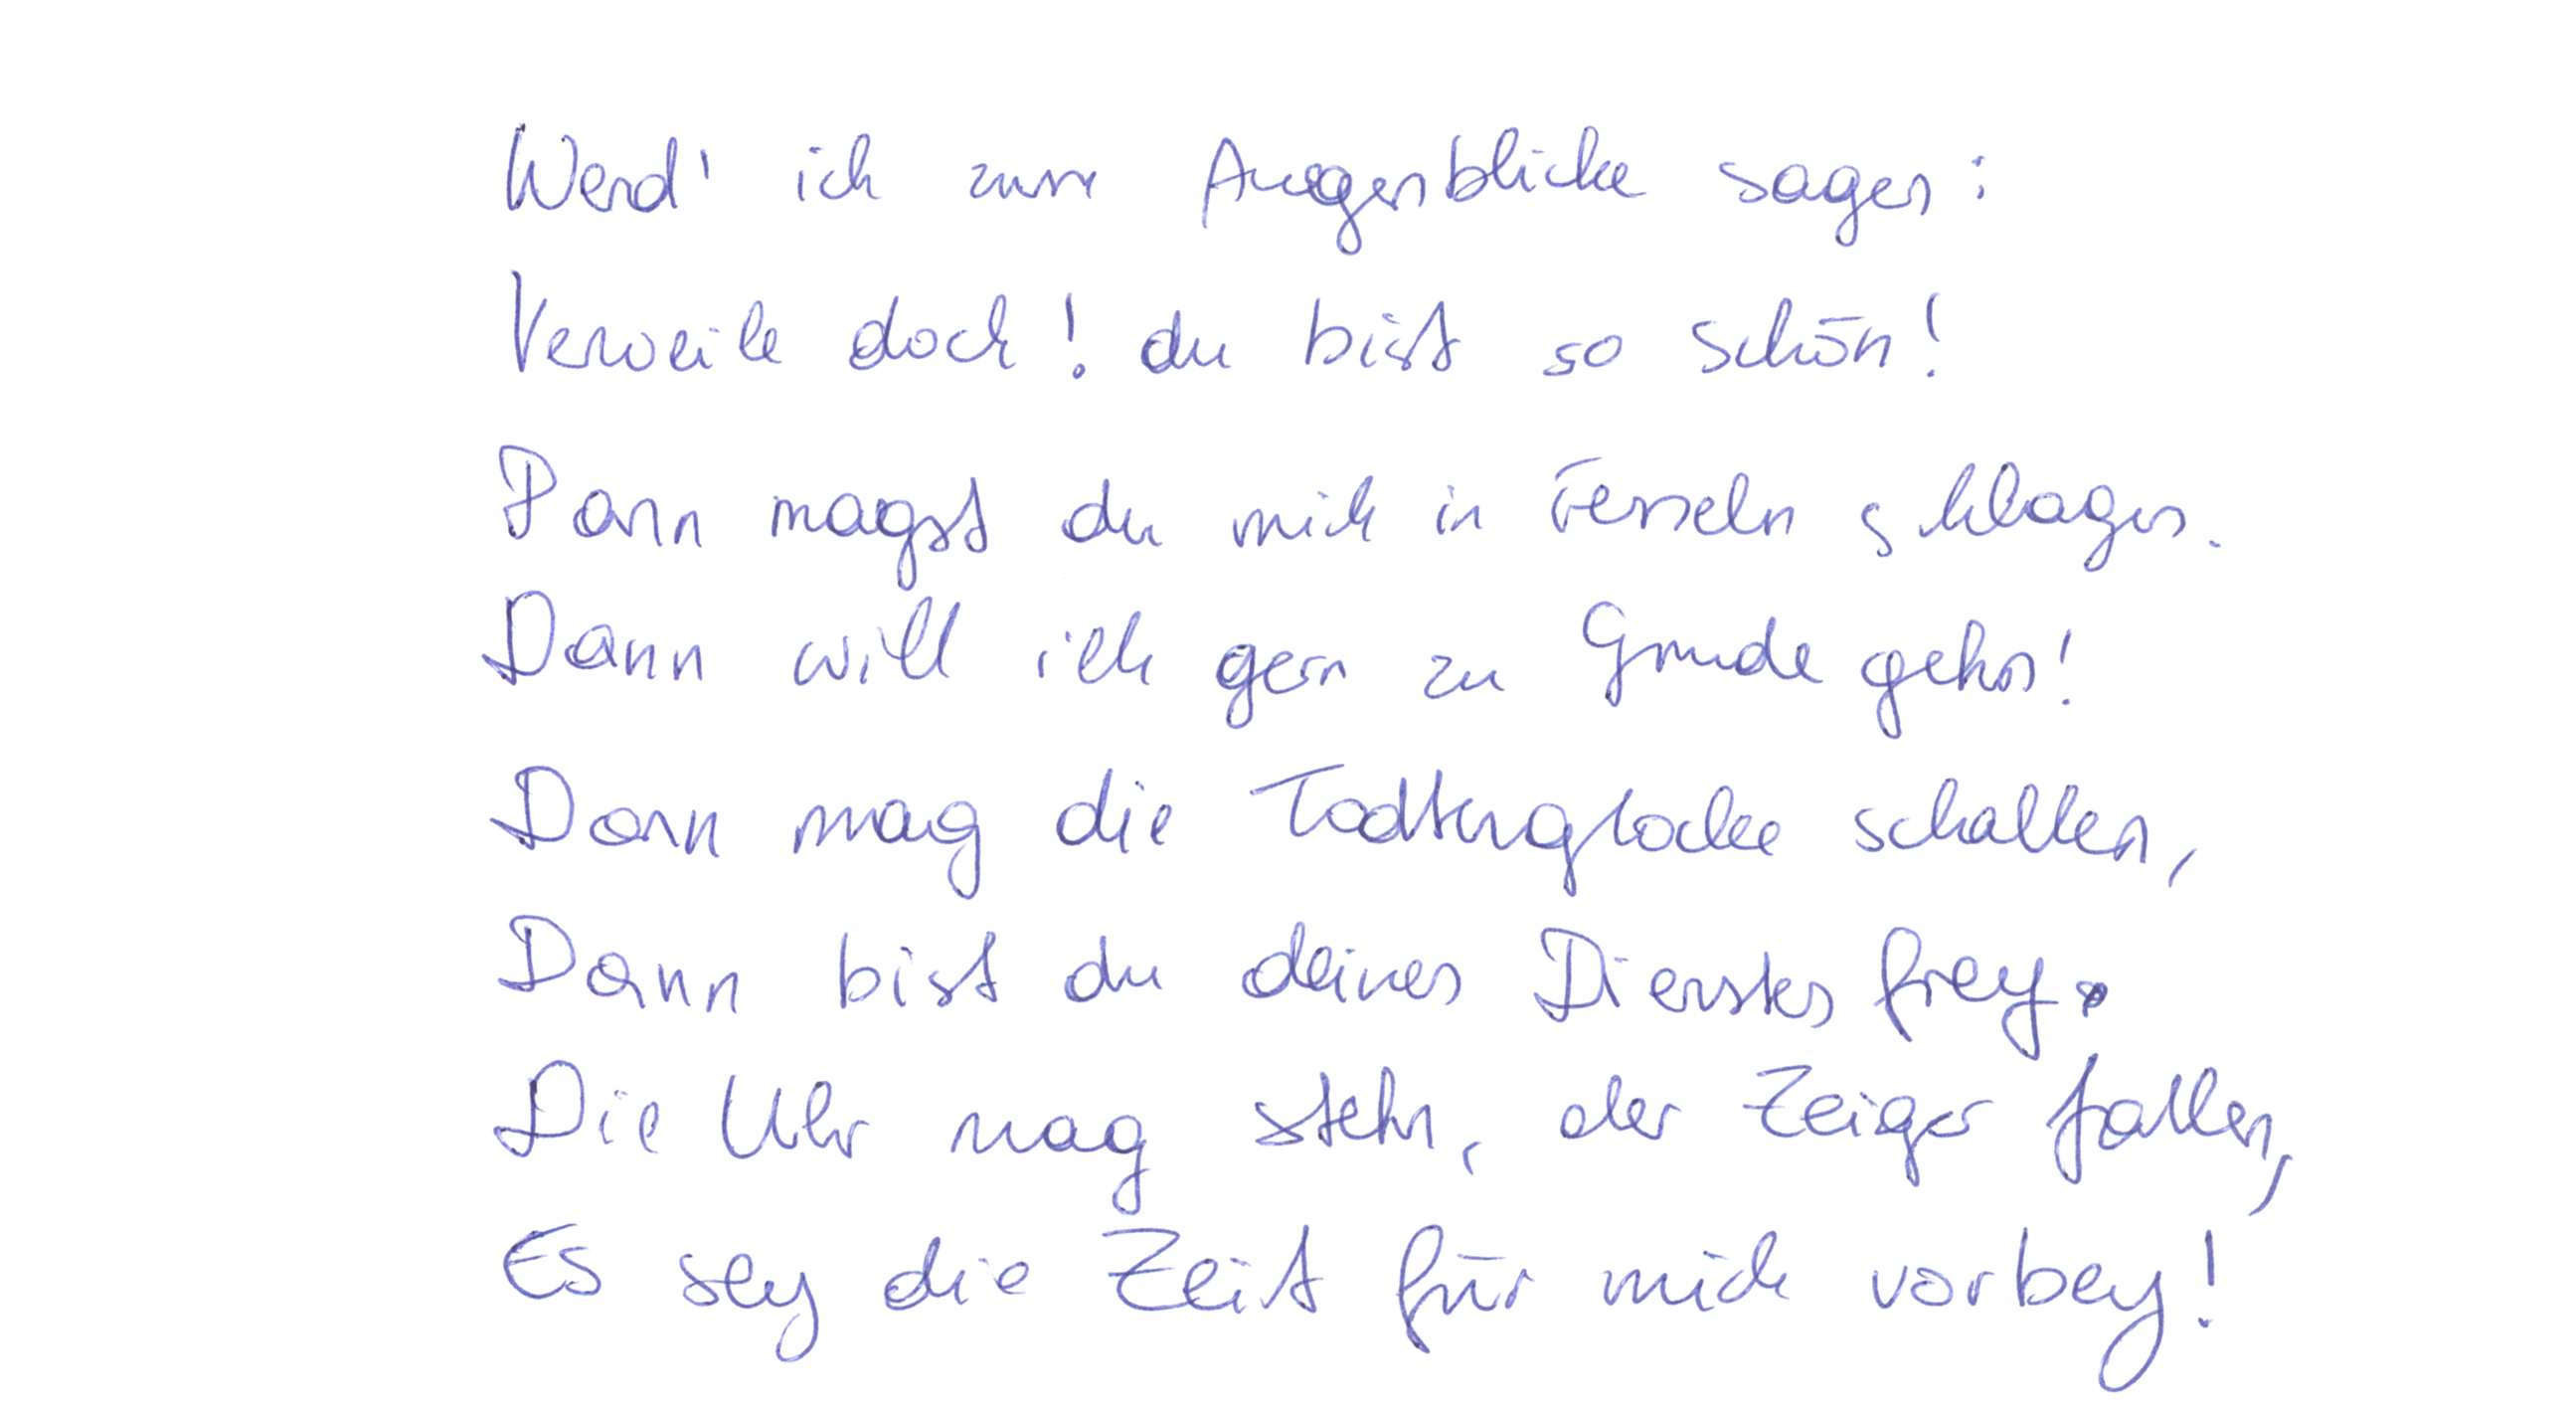 Werd' ich zum Augenblicke sagen:
Verweile doch! du bist so schön!
Dann magst du mich in Fesseln schlagen.
Dann will ich gern zu Grunde gehn!
Dann mag die Todtenglocke schallen,
Dann bist du deines Dienstes frey.
Die Uhr mag stehn, der Zeiger fallen,
Es sey die Zeit für mich vorbey!